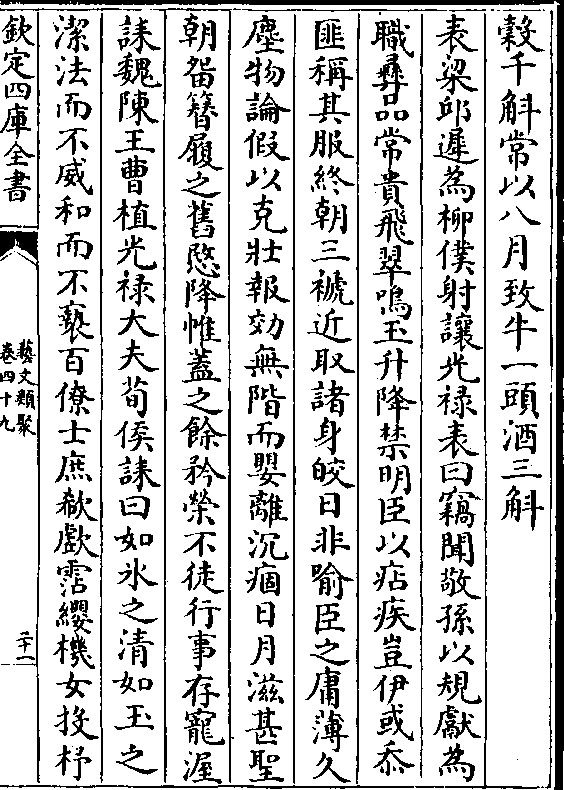 穀千斛常以八月致牛一頭酒三斛
表梁邱遲為柳僕射讓光祿表曰竊聞敬孫以規獻為
職彞品常貴飛翠鳴玉升降禁明臣以痁疾豈伊或忝
匪稱其服終朝三褫近取諸身皎日非喻臣之庸薄久
塵物論假以克壯報効無階而嬰離沉痼日月滋甚聖
朝留簪履之舊愍降惟蓋之餘矜榮不徒行事存寵渥
誄魏陳王曹植光祿大夫荀侯誄曰如氷之清如玉之
潔法而不威和而不䙝百僚士庶欷歔霑纓機女投杼
欽定四庫全書
藝文類聚
卷四十九
二十一